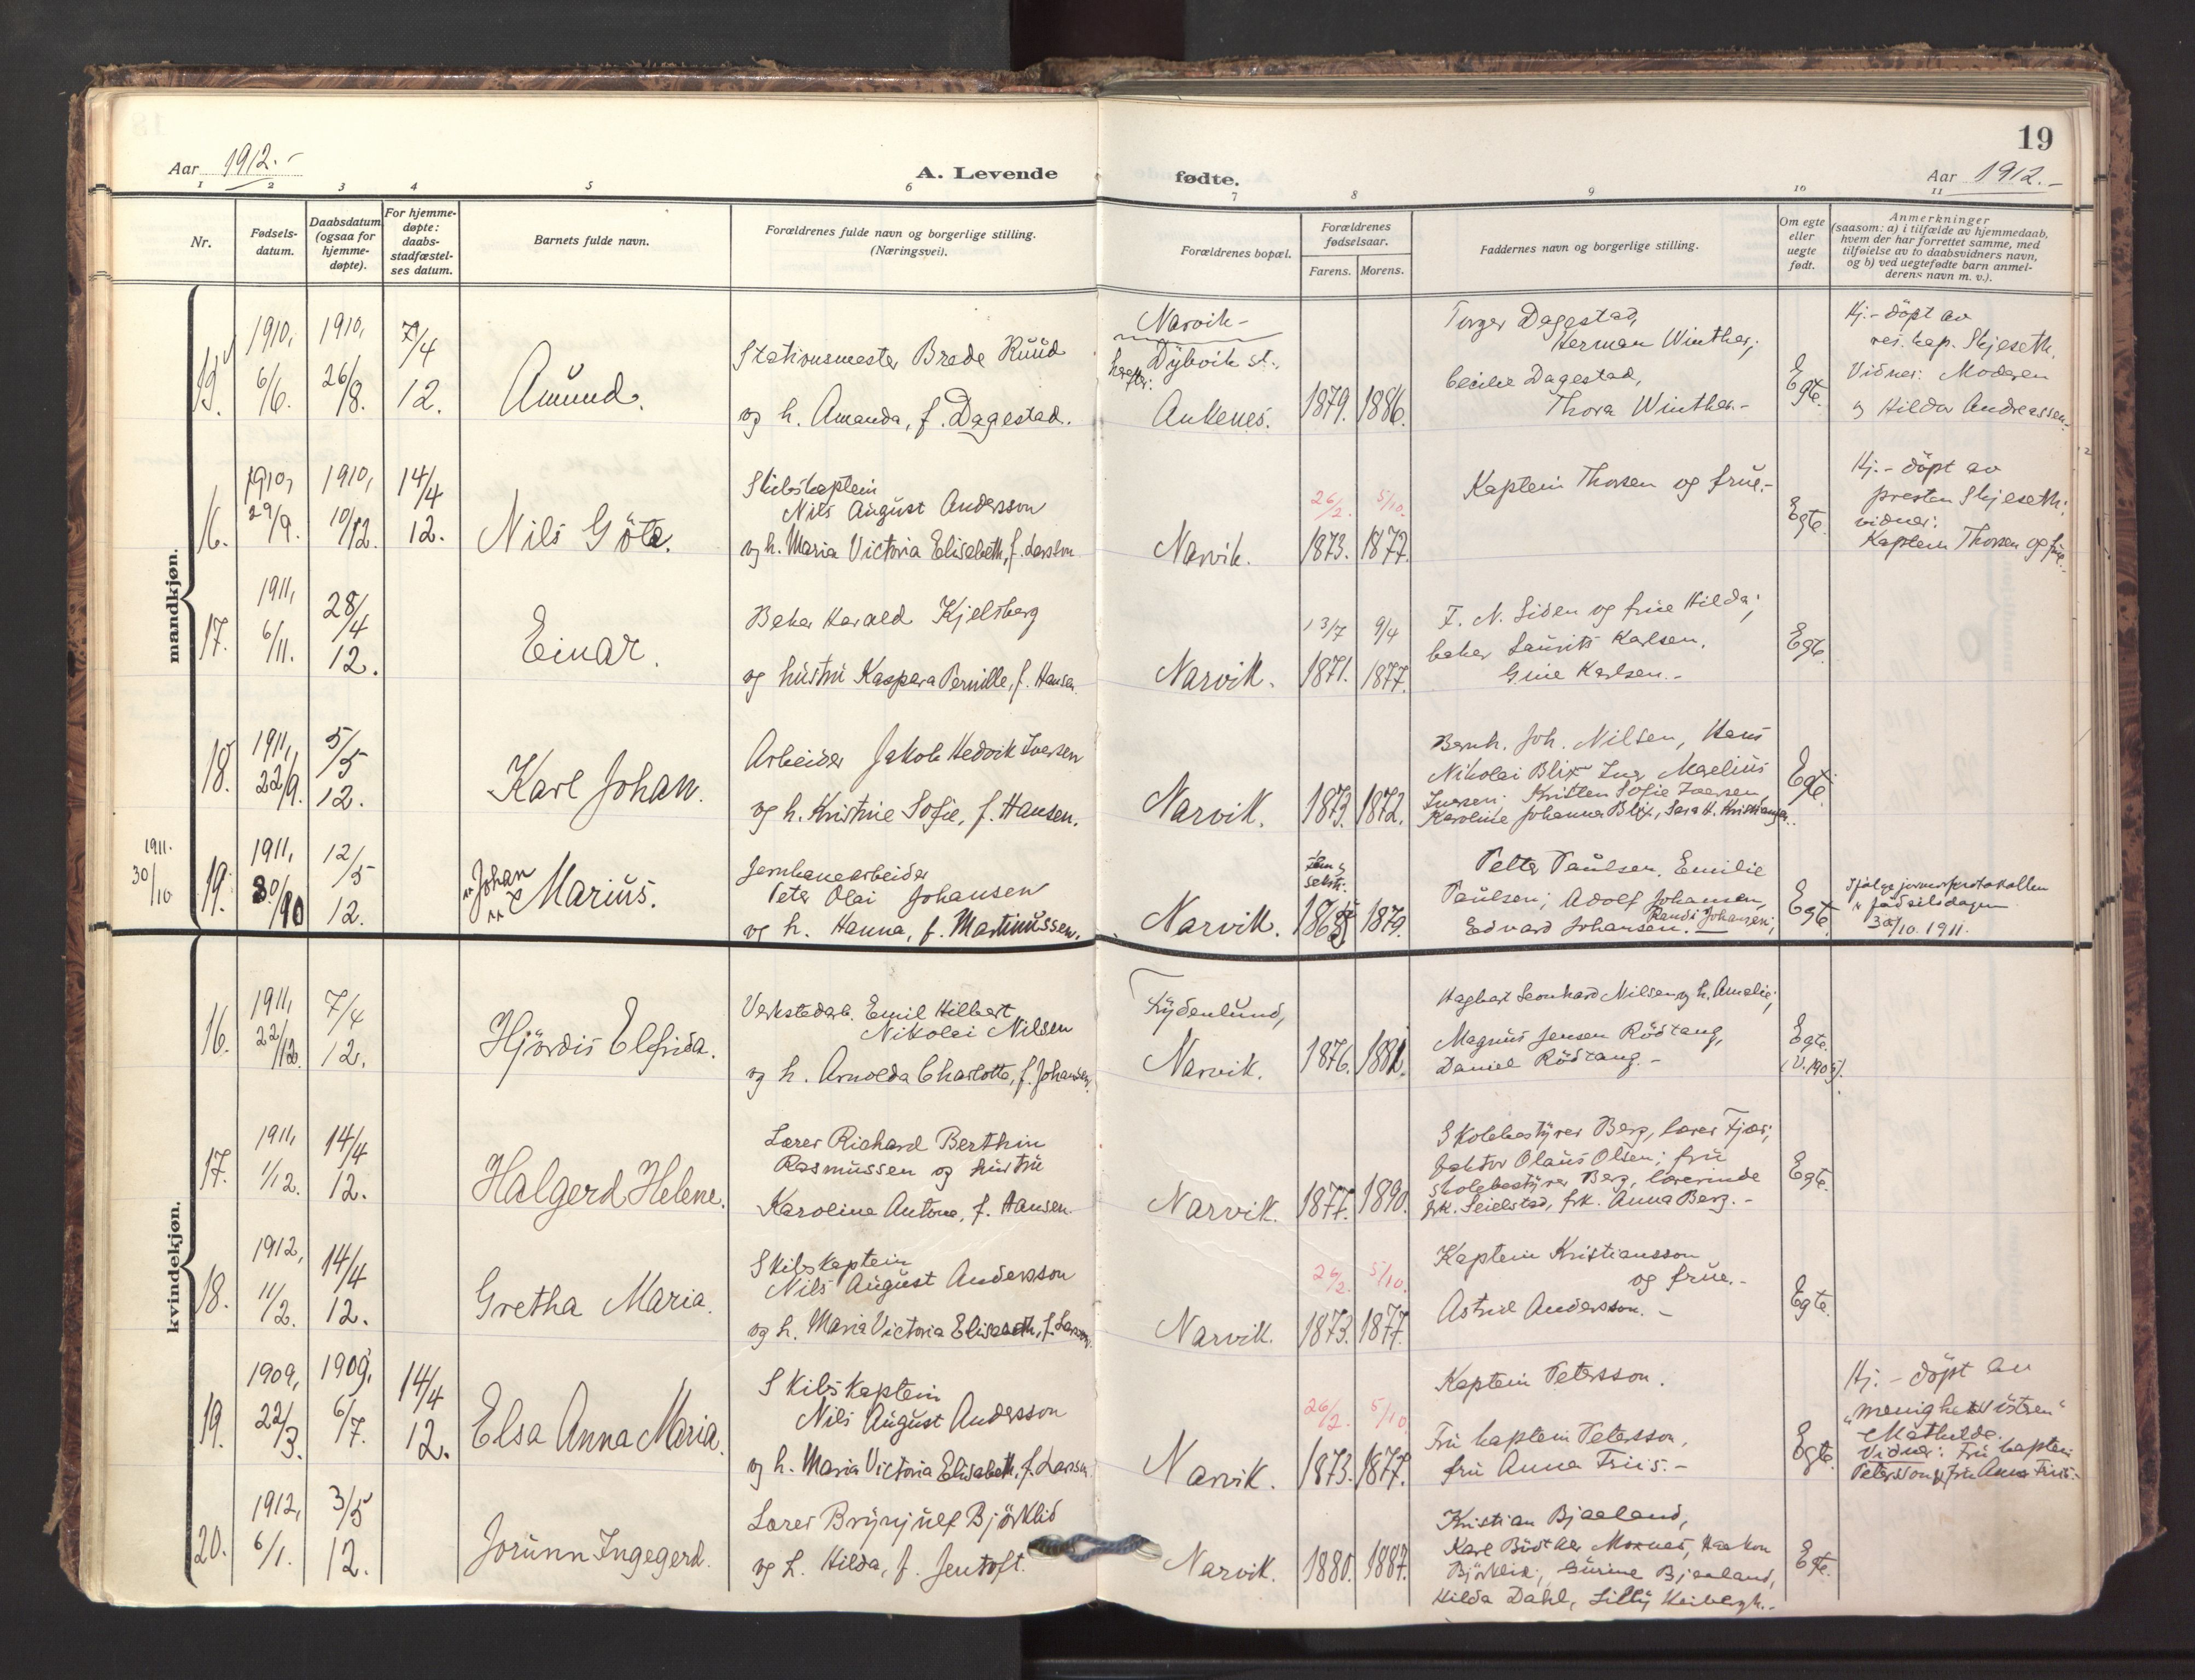 19
Aar 1912.-
A. Levende
fødte.
Aar 1912.-
1 2 3 4 5 6 7 8 9 10 11
Nr.
Fødsels-
datum.
Daabsdatum
(ogsaa for
hjemme-
døpte).
For hjemme-
døpte:
daabs-
stadfæstel-
ses datum.
Barnets fulde navn.
Forældrenes fulde navn og borgerlige stilling.
(Næringsvei).
Forældrenes bopæl.
Forældrenes
fødselsaar.
Farens. Morens.
Faddernes navn og borgerlige stilling.
Om egte
eller
uegte
født.
Anmerkninger
(saasom: a) i tilfælde av hjemmedaab,
hvem der har forrettet samme, med
tilføielse av to daabsvidners navn,
og b) ved uegtefødte barn anmel-
derens navn m. v.).
mandkjøn.
1910,
6/6.
1910,
26/8.
7/4
12.
Amund.
Stationsmester Brede Ruud
og h. Amanda, f. Dagestad.
Narvik-
Dybvik st.,
Ankenes.
1879. 1886.
Torger Dagestad,
Herman Winther;
Cecilie Dagestad,
Thora Winther.-
Egte.
Hj.-döpt av
res. kap. Skjeseth.
Vidner: Moderen
og Hilda Andreassen.
16.
1910,
29/9.
1910,
10/12.
14/4
12.
Nils Göte.
Skibskaptein
Nils August Andersson
og h. Maria Victoria Elisabeth, f. Larsson
Narvik.
26/2. 5/10.
1873. 1877.
Kaptein Thorsen og frue.-
Egte.
Hj.-döpt av
presten Skjeseth;
vidner:
Kaptein Thorsen og frue.-
17.
1911,
6/11.
28/4
12.
Einar.
Baker Harald Kjelsberg
og hustru Kaspara Pernille, f. Hansen.
Narvik.
13/7 9/4
1871. 1877.
F. N. Liden og frue Hilda;
baker Laurits Karlsen,
Gine Karlsen.-
Egte.
18.
1911,
22/9.
5/5
12.
Karl Johan.
Arbeider Jakob Hedvik Iversen
og h. Kristine Sofie, f. Hansen.
Narvik.
1873. 1872.
Bernh. Joh. Nilsen, Hans
Nikolai Blix, Maelius
Iversen; Kristen Sofie Iversen,
Karoline Johanna Blix, Sara H. Kristiansen.
Egte.
1911.
30/10
19.
1911,
30/10
12/5
12.
Johan
Marius.
Jernbanearbeider
Peter Olai Johansen
og h. Hanna, f. Martinussen.
Narvik.
1879.
Petter Paulsen, Emilie
Paulsen; Adolf Johansen,
Randi Johansen;
Edvard Johansen.
Egte.
Ifølge jormorprotokollen
er fødselsdagen
30/10 1911.
kvindekjøn.
16.
1911,
22/12.
7/4
12.
Hjördis Elfrida.
Verkstedarb. Emil Hilbert
Nikolai Nilsen
og h. Arnolda Charlotte, f. Johansen.
Frydenlund,
Narvik.
1876. 1881.
Hagbart Leonhard Nilsen og h. Amalie;
Magnus Jensen Rödtang,
Daniel Rödtang.-
Egte.
17.
1911,
1/12.
14/4
12.
Halgerd Helene.
Lærer Richard Berthin
Rasmussen og hustru
Karoline Antona, f. Hansen.
Narvik.
1877. 1890.
Skolebestyrer Berg, lærer Fjær;
faktor Olaus Olsen; fru
skolebestyrer Berg, lærerinde
frk. Seielstad, frk. Anna Berg.-
Egte.
18.
1912,
11/2.
14/4
12.
Gretha Maria.
Skibskaptein
Nils August Andersson
og h. Maria Victoria Elisabeth, f. Larsson
Narvik.
26/2. 5/10.
1873. 1877.
Kaptein Kristiansson
og frue.-
Astrid Andersson.-
Egte.
19.
1909,
22/3.
1909,
6/7.
14/4
12.
Elsa Anna Maria.
Skibskaptein
Nils August Andersson
og h. Maria Victoria Elisabeth, f. Larsson.
Narvik.
26/2. 5/10
1873. 1877.
Kaptein Petersson.
Fru kaptein Petersson,
fru Anna Friis.-
Egte.
Hj.-döpt av
"menighetssöstren"
Mathilde.
Vidner: Fru kaptein
Petersson og fru Anna Friis.-
20.
1912,
6/1.
3/5
12.
Jorunn Ingegerd.
Lærer Brynjulf Björklid
og h. Hilda, f. Jentoft.
Narvik.
1880. 1887.
Kristian Bjaaland,
Karl Bödtker Moxnes, Haakon
Björklid; Gurine Bjaaland,
Hilda Dahl, Lilly
Egte.